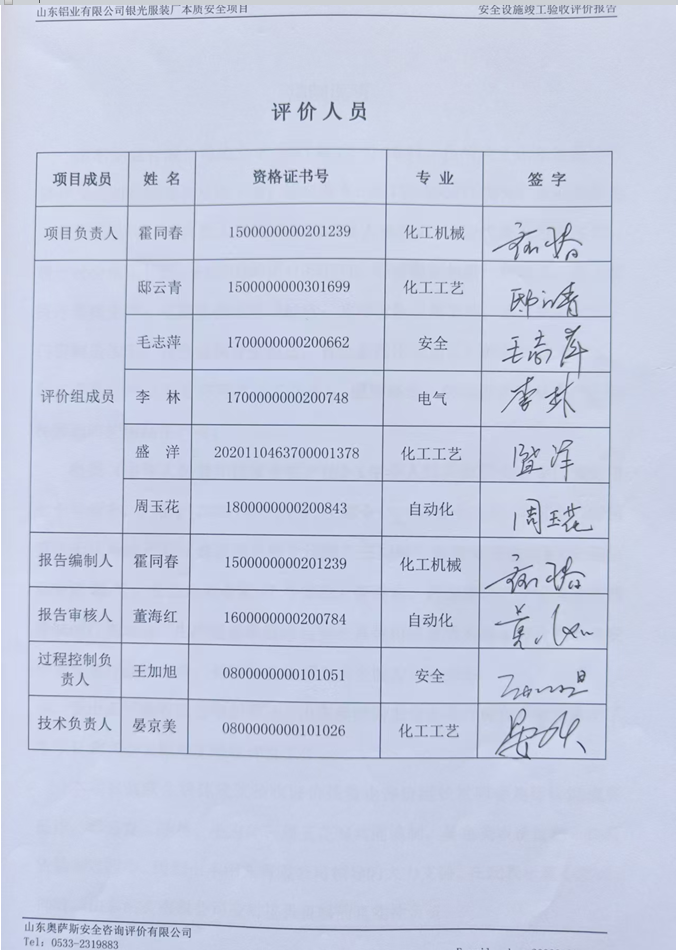 山东铝业有限公司银光服装厂本质安全项目 安全设施竣工验收评价报告
评价人员
项目成员 姓名 资格证书号 专业 签字
项目负责人 霍同春 1500000000201239 化工机械
邸云青 1500000000301699 化工工艺 邸云青
毛志萍 1700000000200662 安全 毛志萍
评价组成员 李林 1700000000200748 电气 李林
盛洋 2020110463700001378 化工工艺 盛洋
周玉花 1800000000200843 自动化 周玉花
报告编制人 霍同春 1500000000201239 化工机械
报告审核人 董海红 1600000000200784 自动化
过程控制负
责人 王加旭 0800000000101051 安全
技术负责人 晏京美 0800000000101026 化工工艺
山东奥萨斯安全咨询评价有限公司
Tel: 0533-2319883